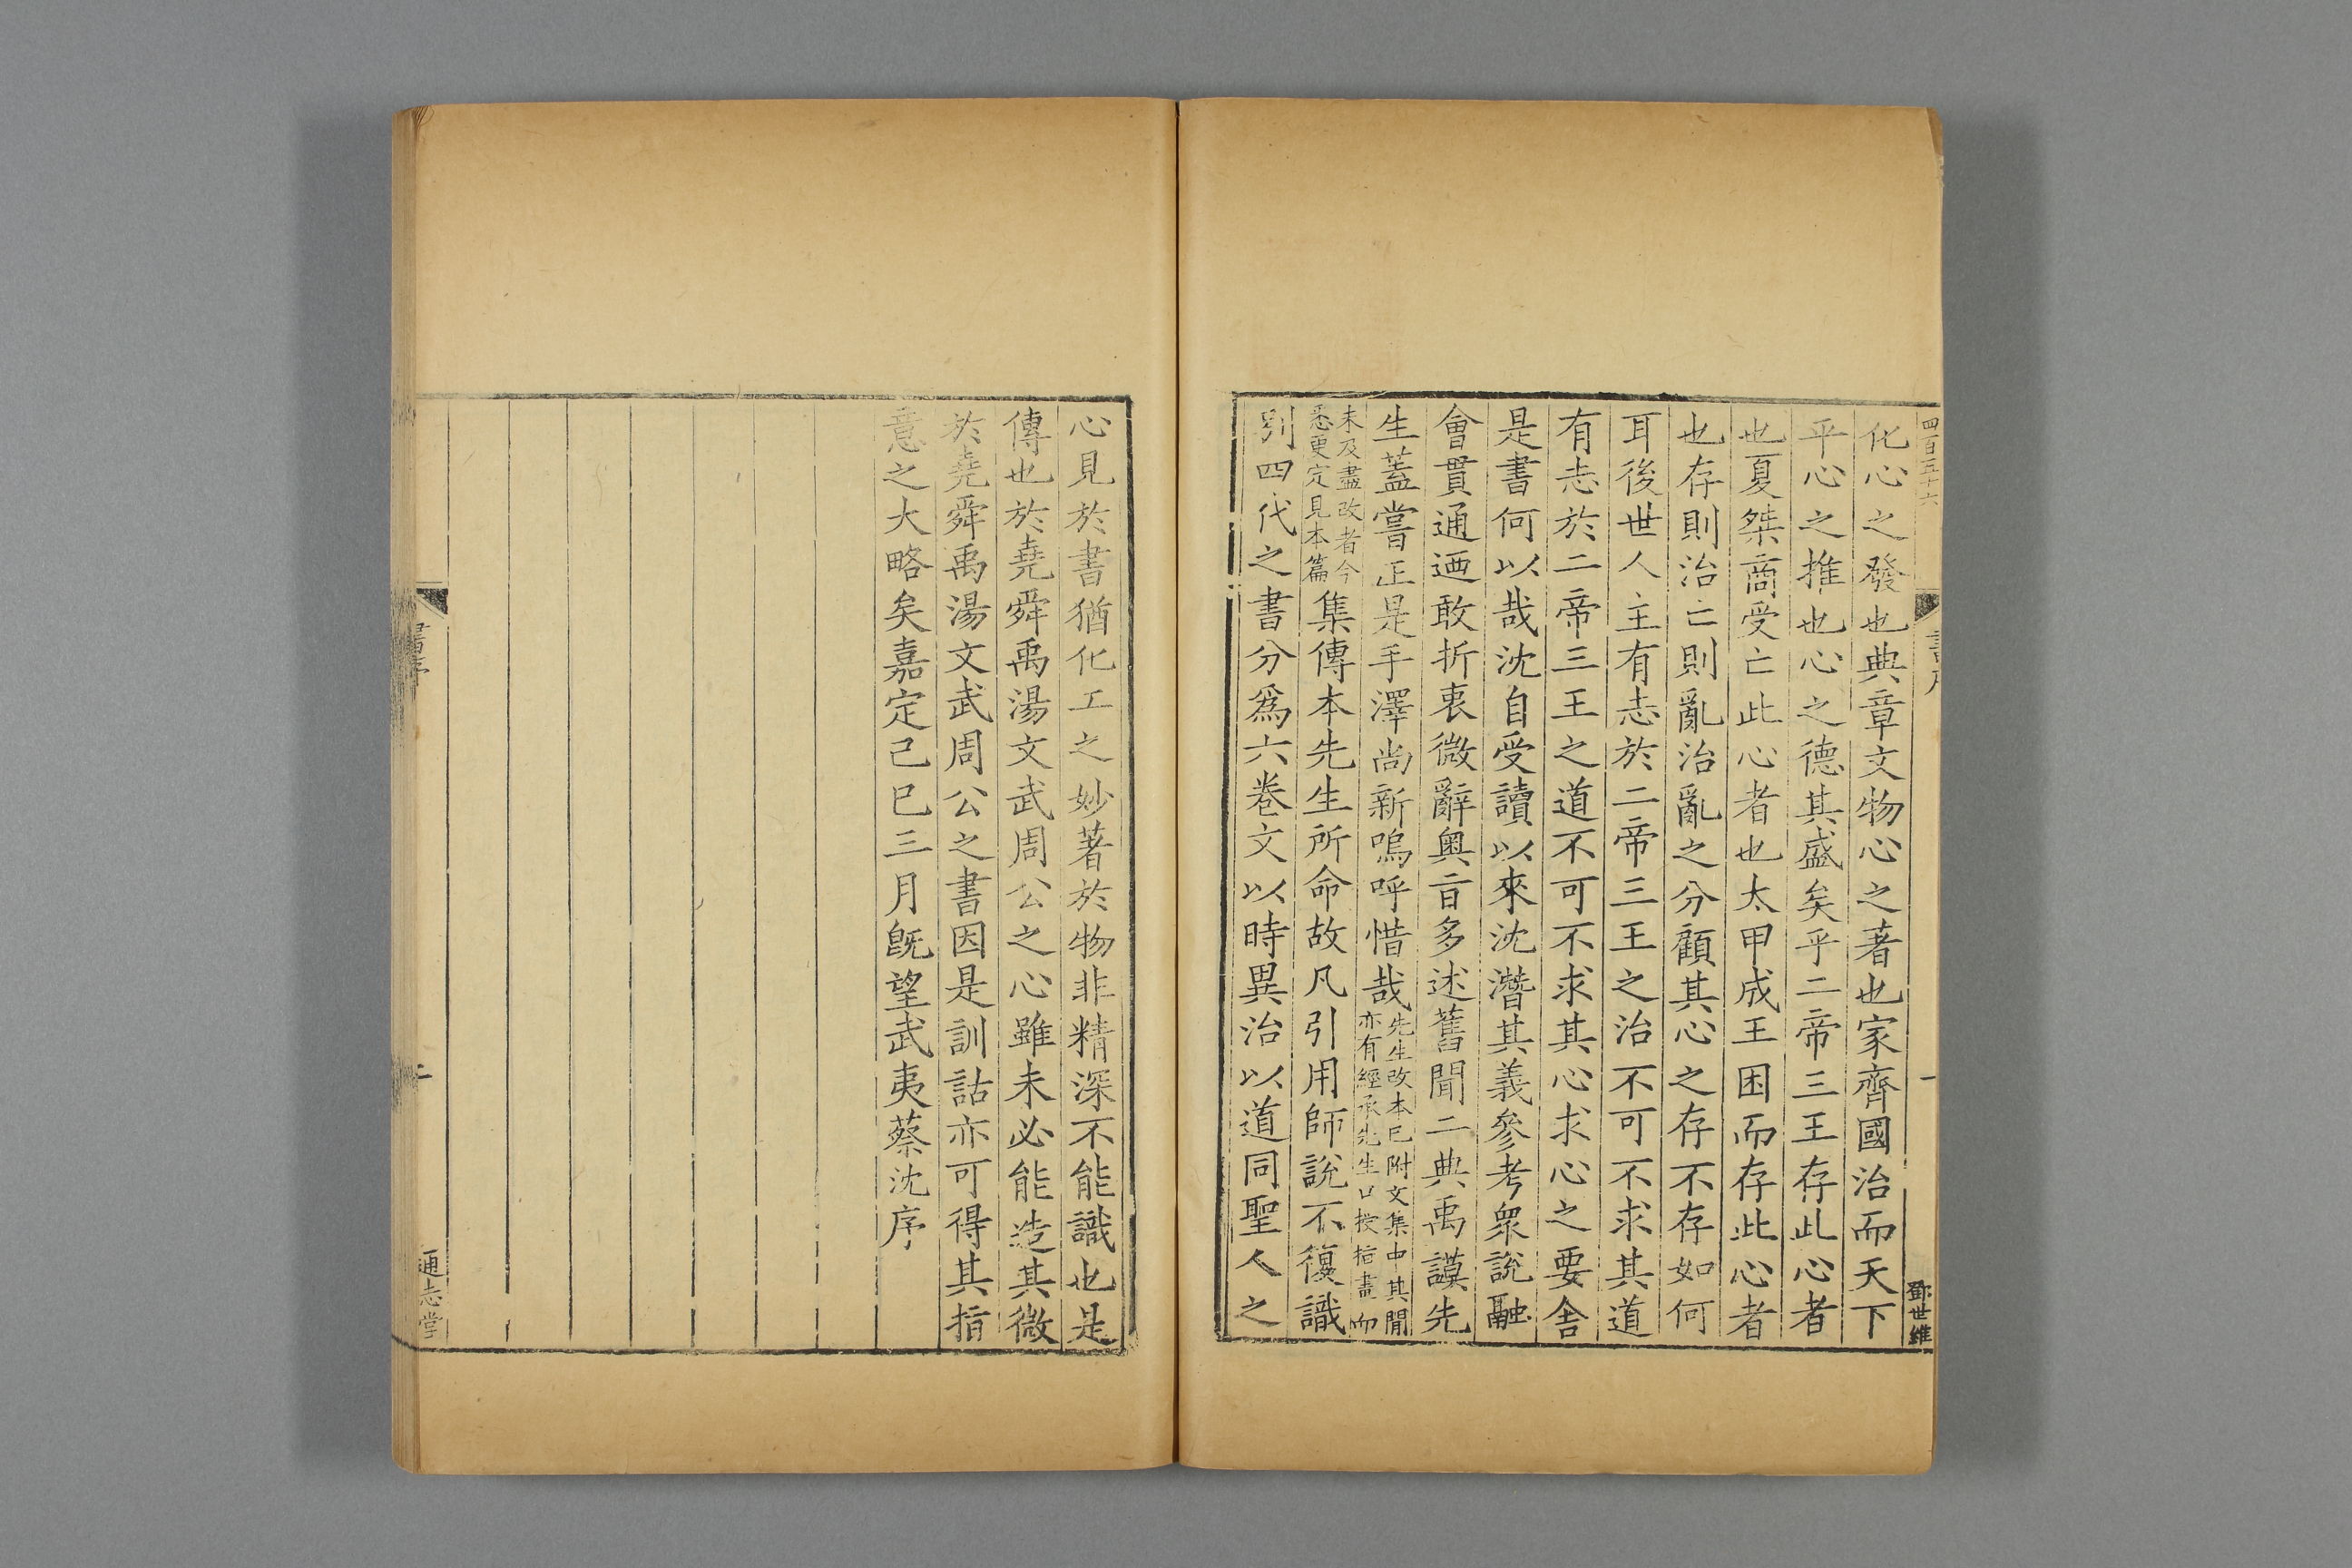 四百五十六
一
鄧世維
化心之發也典章文物心之著也家齊國治而天下
平心之推也心之德其盛矣乎二帝三王存此心者
也夏桀商受亡此心者也太甲成王困而存此心者
也存則治亡則亂治亂之分顧其心之存不存如何
耳後世人主有志於二帝三王之治不可不求其道
有志於二帝三王之道不可不求其心求心之要舍
是書何以哉沈自受讀以來沈潛其義參考衆說融
會貫通迺敢折衷微辭奧旨多述舊聞二典禹謨先
生蓋嘗正是手澤尚新嗚呼惜哉先生改本已附文集中其閒亦有經承先生口授指畫而
未及盡改者今悉更定見本篇集傳本先生所命故凡引用師說不復識
別四代之書分爲六卷文以時異治以道同聖人之
心見於書猶化工之妙著於物非精深不能識也是
傳也於堯舜禹湯文武周公之心雖未必能造其微
於堯舜禹湯文武周公之書因是訓詁亦可得其指
意之大略矣嘉定己巳三月旣望武夷蔡沈序
書序
二
通志堂